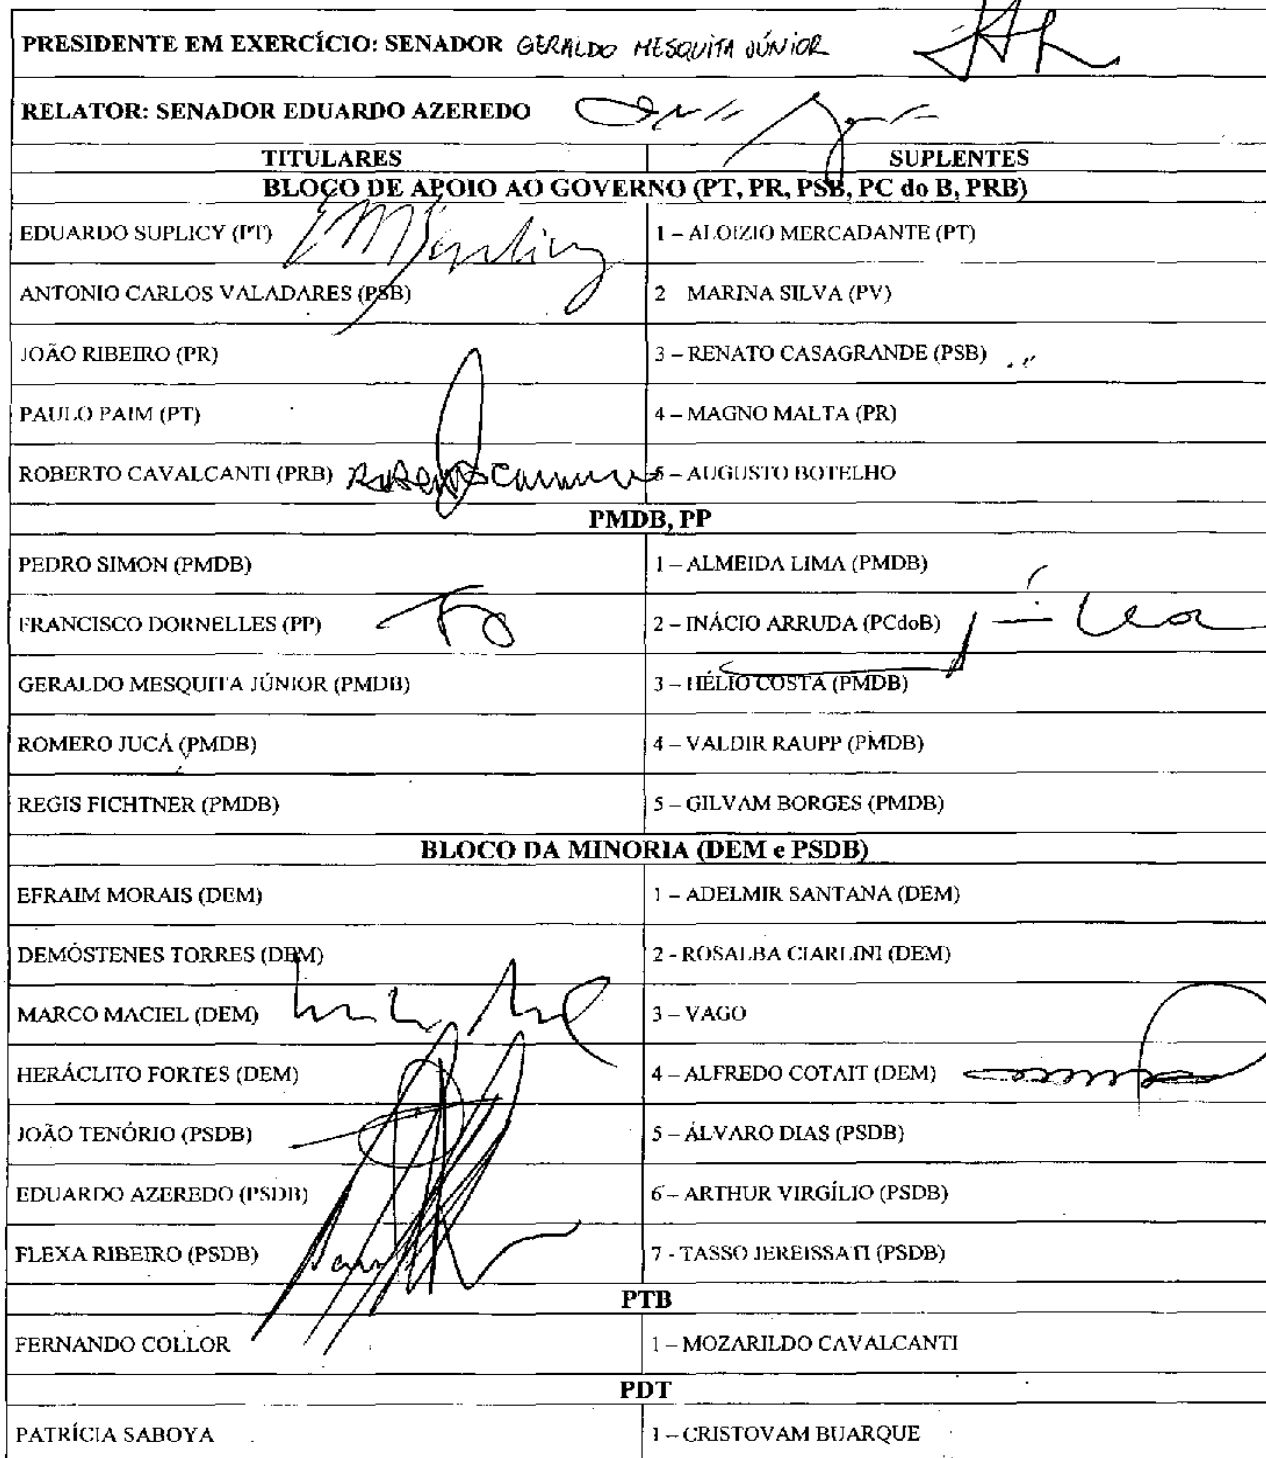 PRESIDENTE EM EXERCÍCIO: SENADOR GERALDO MESQUITA JÚNIOR
RELATOR: SENADOR EDUARDO AZEREDO
TITULARES SUPLENTES
BLOCO DE APOIO AO GOVERNO (PT, PR, PSB, PC do B, PRB)
EDUARDO SUPLICY (PT) 1 – ALOIZIO MERCADANTE (PT)
ANTONIO CARLOS VALADARES (PSB) 2 MARINA SILVA (PV)
JOÃO RIBEIRO (PR) 3 – RENATO CASAGRANDE (PSB)
PAULO PAIM (PT) 4 – MAGNO MALTA (PR)
ROBERTO CAVALCANTI (PRB) 5 – AUGUSTO BOTELHO
PMDB, PP
PEDRO SIMON (PMDB) 1 – ALMEIDA LIMA (PMDB)
FRANCISCO DORNELLES (PP) 2 – INÁCIO ARRUDA (PCdoB)
GERALDO MESQUITA JÚNIOR (PMDB) 3 – HÉLIO COSTA (PMDB)
ROMERO JUCÁ (PMDB) 4 – VALDIR RAUPP (PMDB)
REGIS FICHTNER (PMDB) 5 – GILVAM BORGES (PMDB)
BLOCO DA MINORIA (DEM e PSDB)
EFRAIM MORAIS (DEM) 1 – ADELMIR SANTANA (DEM)
DEMÓSTENES TORRES (DEM) 2 - ROSALBA CIARLINI (DEM)
MARCO MACIEL (DEM) 3 – VAGO
HERÁCLITO FORTES (DEM) 4 – ALFREDO COTAIT (DEM)
JOÃO TENÓRIO (PSDB) 5 – ÁLVARO DIAS (PSDB)
EDUARDO AZEREDO (PSDB) 6 – ARTHUR VIRGÍLIO (PSDB)
FLEXA RIBEIRO (PSDB) 7 - TASSO JEREISSATI (PSDB)
PTB
FERNANDO COLLOR 1 – MOZARILDO CAVALCANTI
PDT
PATRÍCIA SABOYA 1 – CRISTOVAM BUARQUE